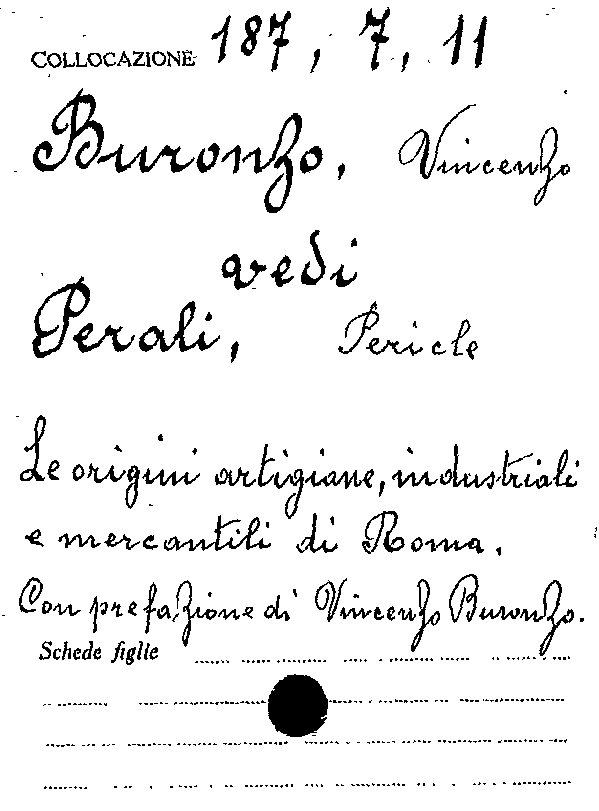 COLLOCAZIONE 187, 7, 11
Buronzo, Vincenzo
vedi
Perali, Pericle
Le origini artigiane, industriali
e mercantili di Roma.
Con prefazione di Vincenzo Buronzo.
Schede figlie